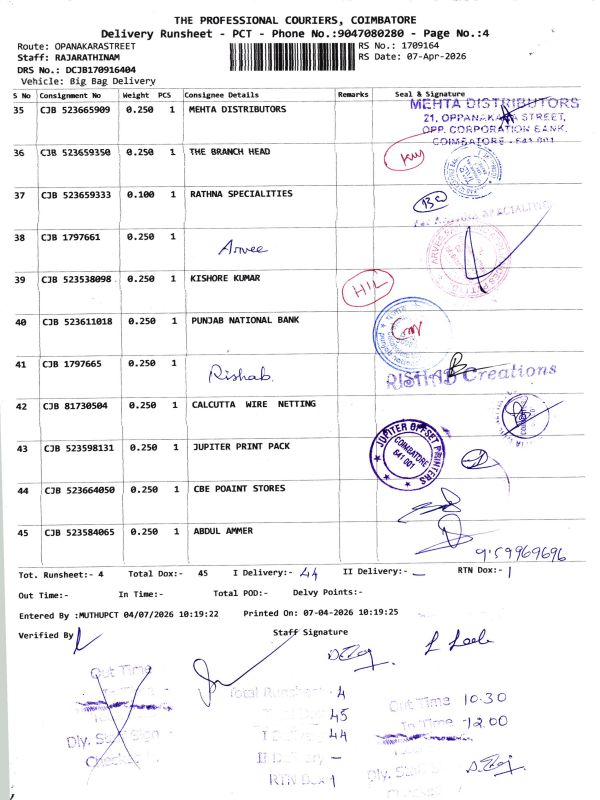 THE PROFESSIONAL COURIERS, COIMBATORE
Delivery Runsheet - PCT - Phone No.:9047080280 - Page No.:4
Route: OPANAKARASTREET RS No.: 1709164
Staff: RAJARATHINAM RS Date: 07-Apr-2026
DRS No.: DCJB170916404
Vehicle: Big Bag Delivery
S No Consignment No Weight PCS Consignee Details Remarks Seal & Signature
35 CJB 523665909 0.250 1 MEHTA DISTRIBUTORS
MEHTA DISTRIBUTORS
21, OPPANAKARA STREET,
OPP. CORPORATION BANK,
COIMBATORE - 641 001
36 CJB 523659350 0.250 1 THE BRANCH HEAD
37 CJB 523659333 0.100 1 RATHNA SPECIALITIES
38 CJB 1797661 0.250 1 Arvee
39 CJB 523538098 0.250 1 KISHORE KUMAR HIL
40 CJB 523611018 0.250 1 PUNJAB NATIONAL BANK
41 CJB 1797665 0.250 1 Rishab
RISHAB Creations
42 CJB 81730504 0.250 1 CALCUTTA WIRE NETTING
43 CJB 523598131 0.250 1 JUPITER PRINT PACK
JUPITER OFFSET PRINTERS
COIMBATORE
641 001
44 CJB 523664050 0.250 1 CBE POAINT STORES
45 CJB 523584065 0.250 1 ABDUL AMMER
Tot. Runsheet:- 4 Total Dox:- 45 I Delivery:- 44 II Delivery:- — RTN Dox:- 1
Out Time:- In Time:- Total POD:- Delvy Points:-
Entered By :MUTHUPCT 04/07/2026 10:19:22 Printed On: 07-04-2026 10:19:25
Verified By Staff Signature
Out Time
Dly. Staff Sign
Total Runsheet - 4
45
I Delivery 44
II Delivery —
RTN Dox 1
Out Time 10.30
In Time - 12.00
Dly. Staff S